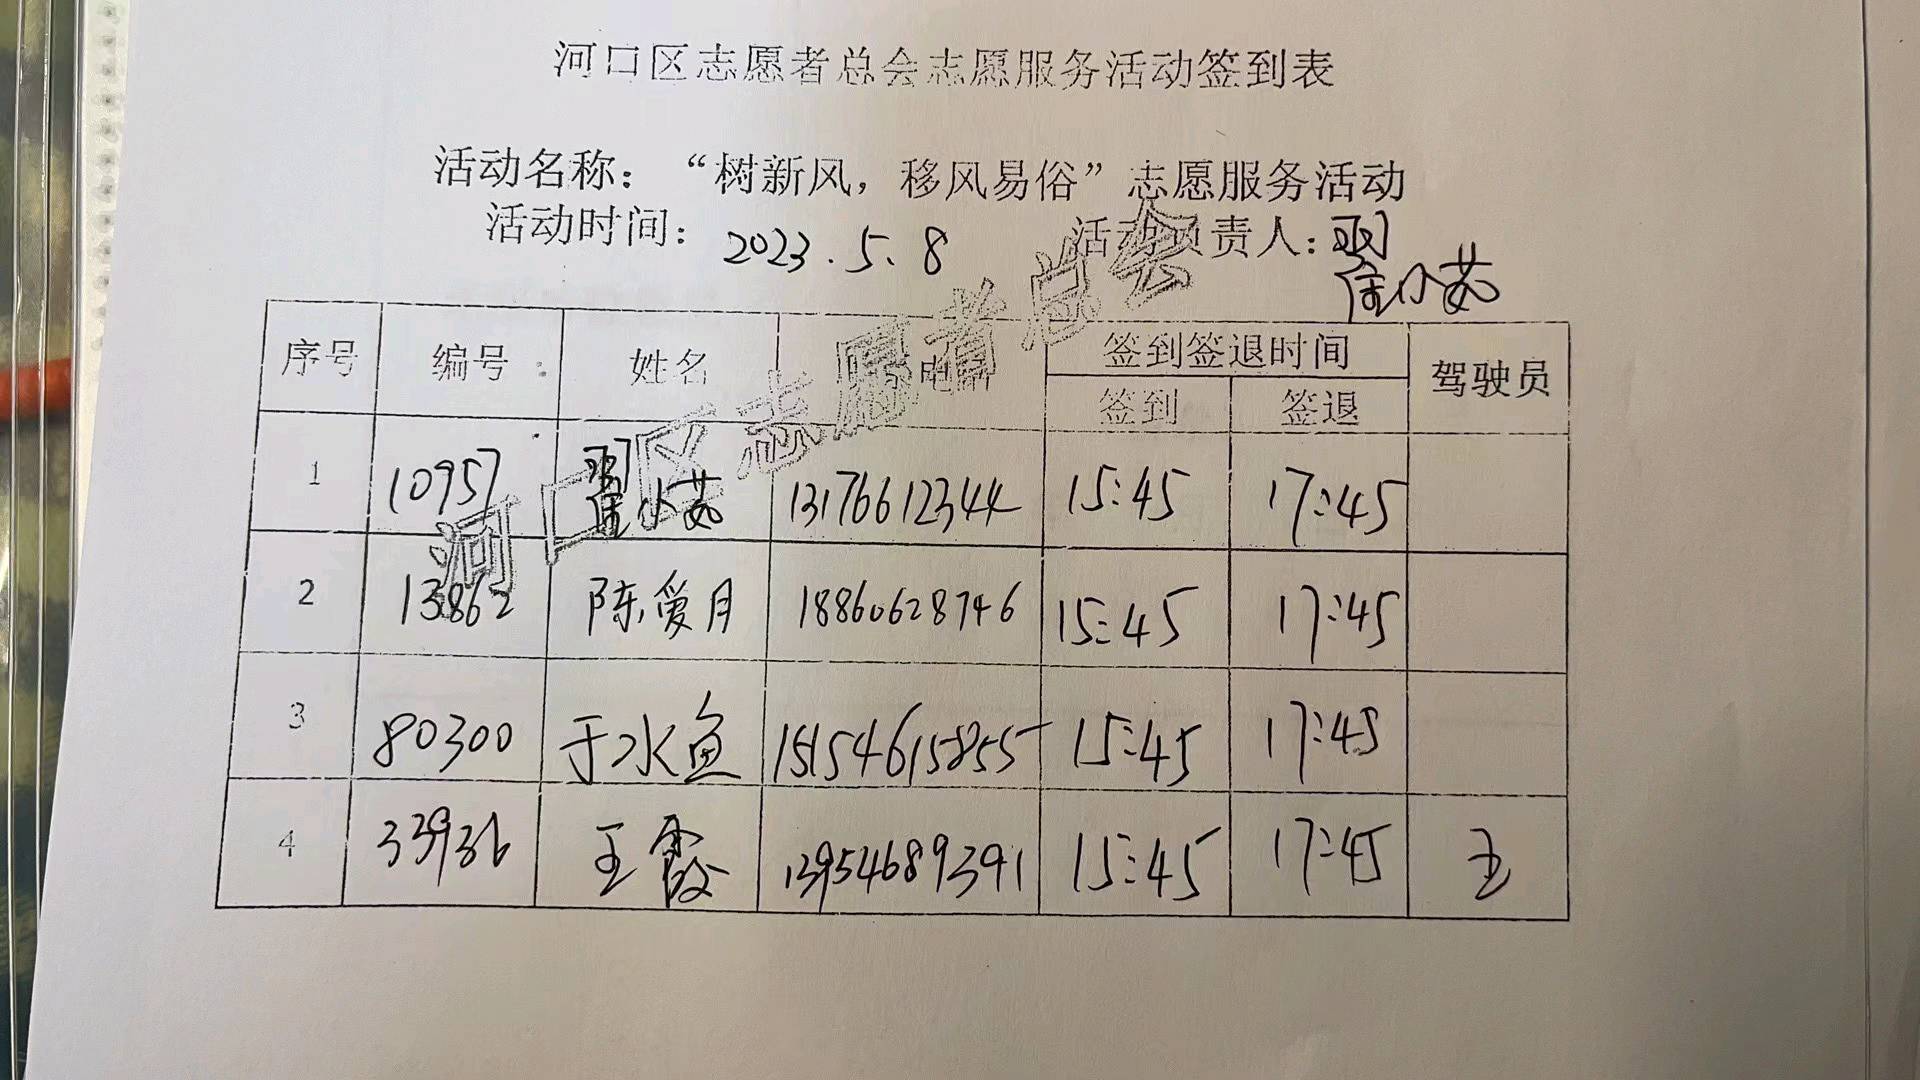 河口区志愿者总会志愿服务活动签到表
活动名称：“树新风，移风易俗”志愿服务活动
活动时间：2023.5.8 活动负责人：翟小茹
序号 编号 姓名 电话 签到签退时间 驾驶员
签到 签退
1 10957 翟小茹 13176612344 15:45 17:45
2 13862 陈爱月 18860628746 15:45 17:45
3 80300 于水鱼 15154615855 15:45 17:45
4 33936 王霞 13954689391 15:45 17:45 王
河口区志愿者总会